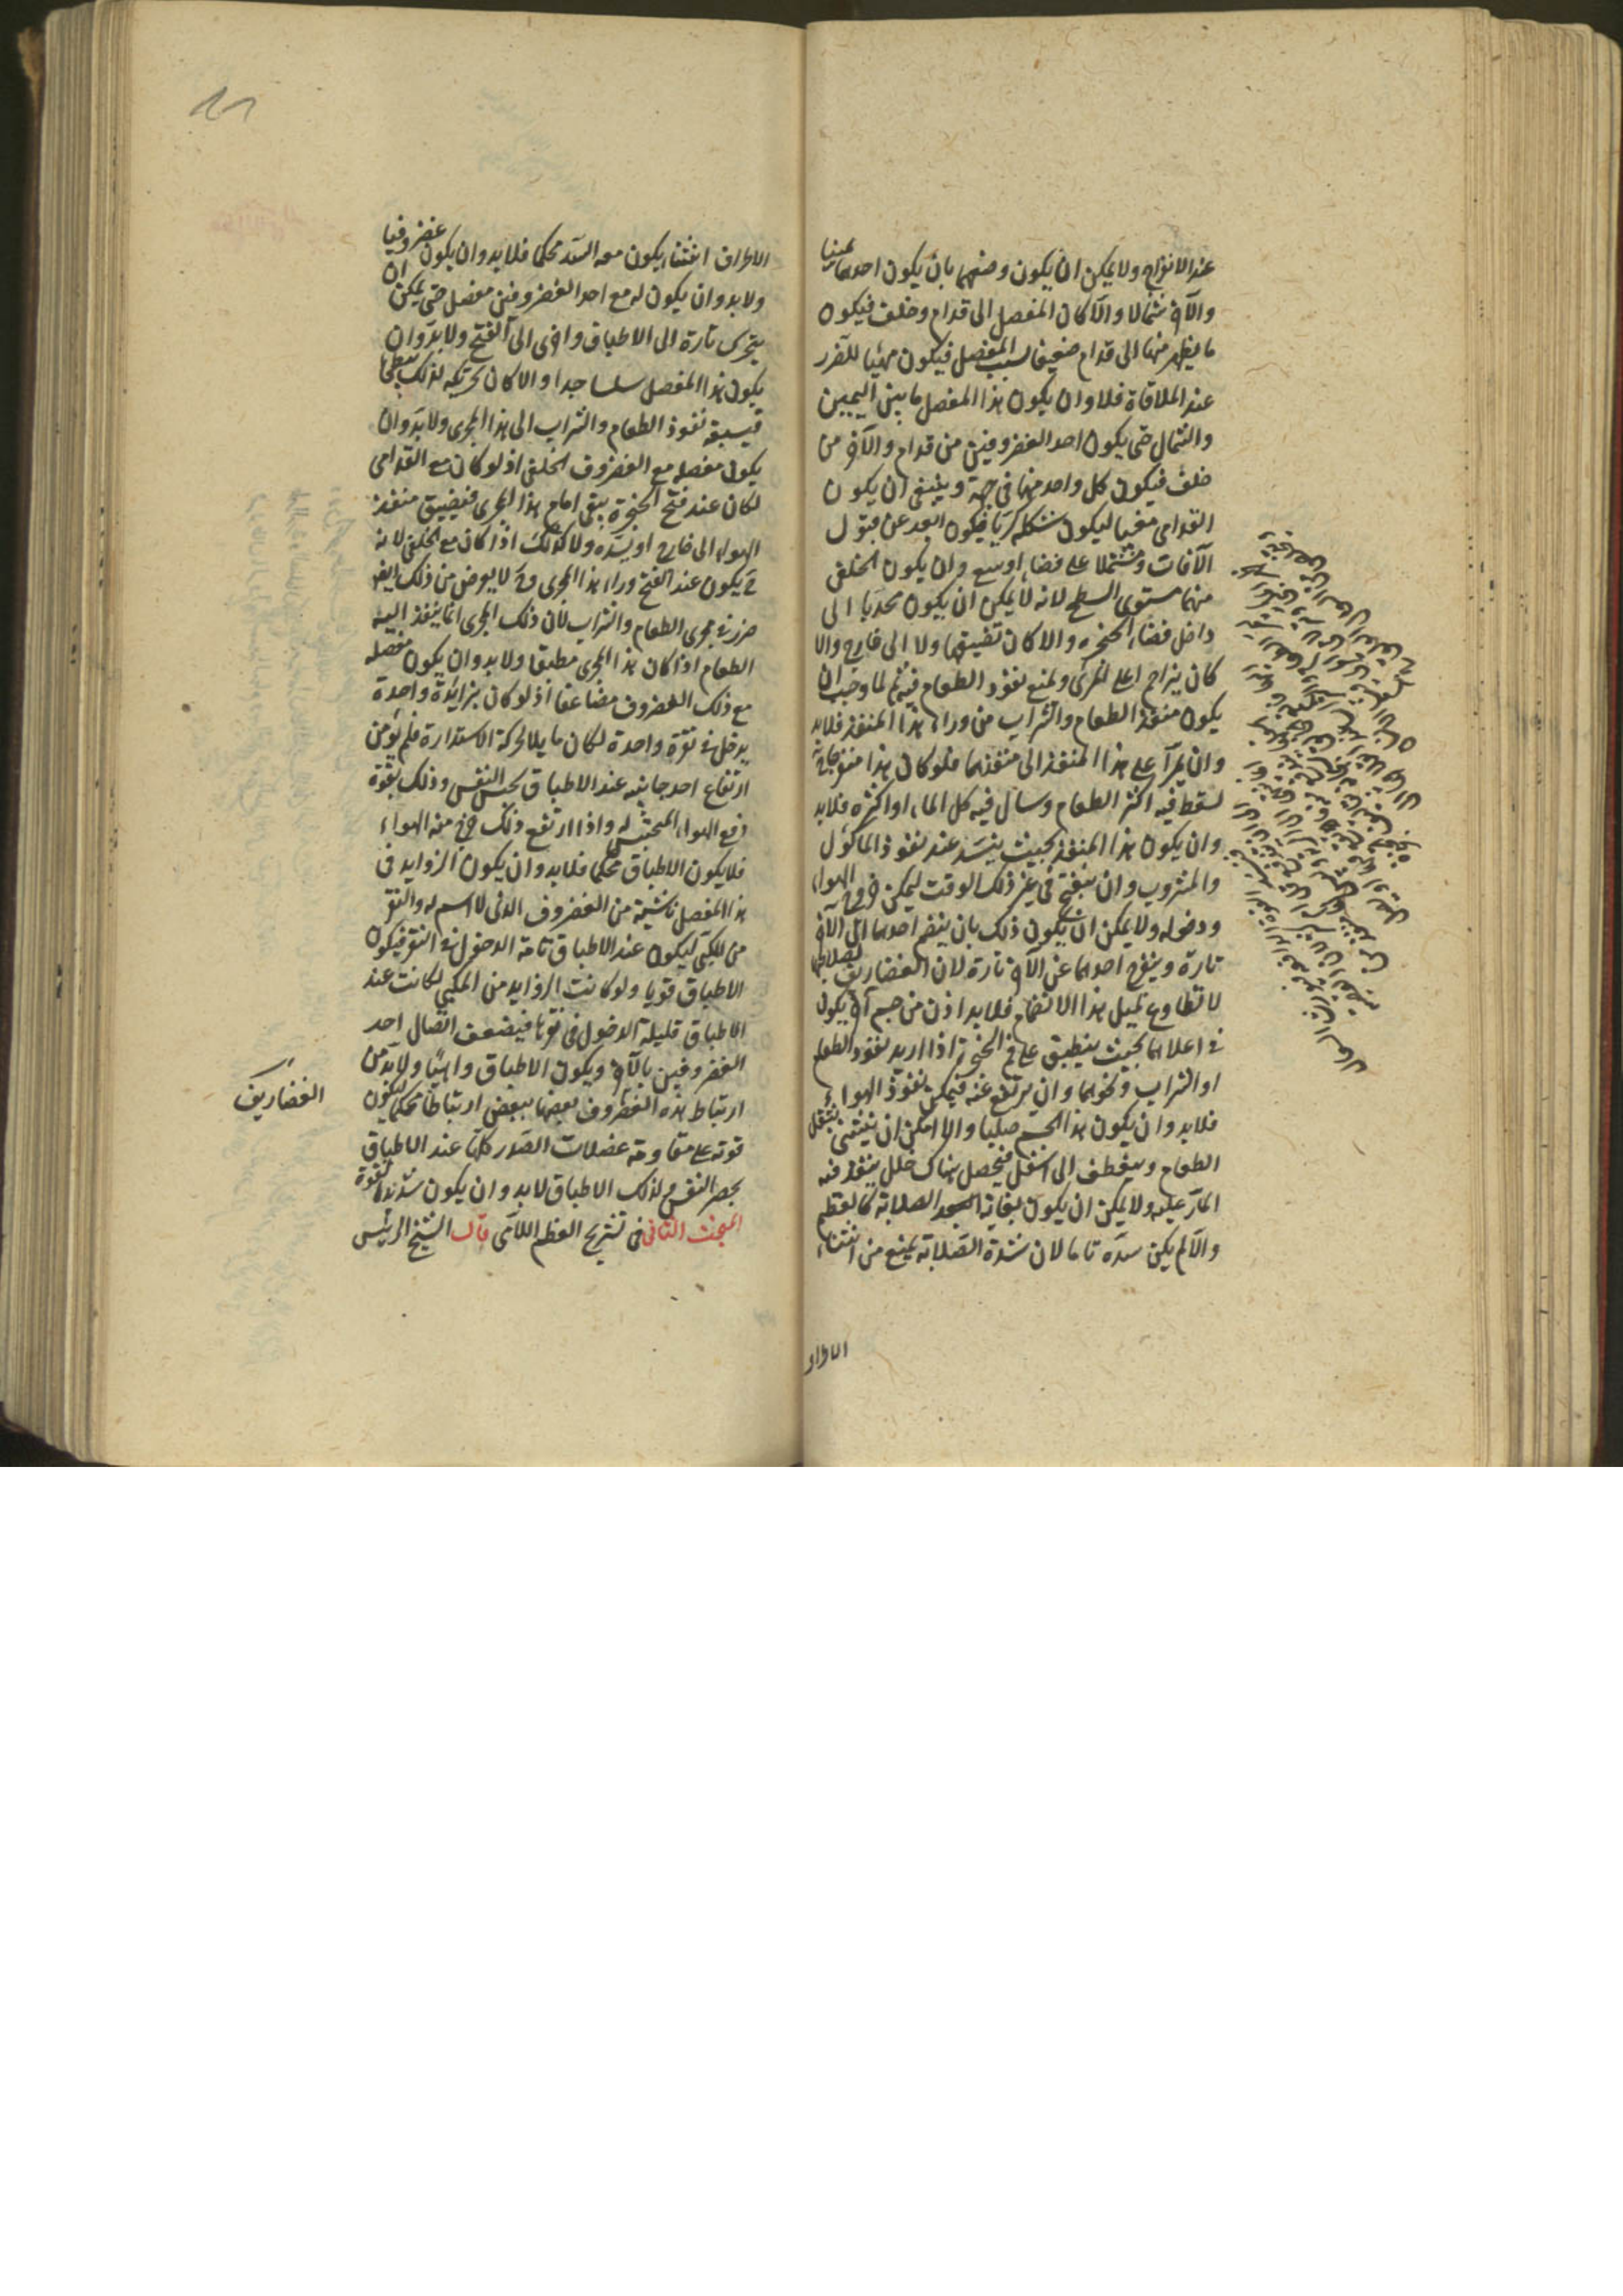 عند الانفراج ولا يمكن ان يكون وضعهما بان يكون احدهما يمينا
والآخر شمالا والا كان المفصل الى قدام وخلف فيكون
ما يظهر منها الى قدام ضعيفا لسبب المفصل فيكون مهيئا للتضرر
عند الملاقاة فلا وان يكون هذا المفصل ما بين اليمين
والشمال حتى يكون احد الغضروفين من قدام والآخر من
خلف فيكون كل واحد منهما في جهة وينبغي ان يكون
القدامى مقببا ليكون شكله كريا فيكون ابعد عن قبول
الآفات ومشتملا على فضاء اوسع وان يكون الخلفى
منهما مستوى السطح لانه لا يمكن ان يكون محدبا الى
داخل فضاء الحنجرة والا كان تضييقهما ولا الى خارج والا
كان يزاحم اعلى المرى ويمنع نفوذ الطعام فيه ثم لما وجب ان
يكون منفذ الطعام والشراب من وراء هذا المنفذ فلابد
وان يمرا على هذا المنفذ الى منفذهما فلو كان هذا منفتحا
لسقط فيه اكثر الطعام وسال فيه كل الماء او اكثره فلابد
وان يكون هذا المنفذ بحيث ينسد عند نفوذ المأكول
والمشروب وان ينفتح في غير ذلك الوقت ليمكن خروج الهواء
ودخوله ولا يمكن ان يكون ذلك بان ينضم احدهما الى الآخر
تارة وينفرج احدهما عن الآخر تارة لان الغضاريف لصلابتها
لا تطاوع لمثل هذا الانضمام فلابد اذن من جسم آخر يكون
في اعلاهما بحيث ينطبق على فم الحنجرة اذا اريد نفوذ الطعام
او الشراب ونحوهما وان يرتفع عنه فيمكن نفوذ الهواء
فلابد وان يكون هذا الجسم صلبا والا امكن ان ينثنى بثقل
الطعام وينعطف الى اسفل فيحصل هناك خلل ينفذ فيه
المار عليه ولا يمكن ان يكون بغاية الصلابة كالعظم
والا لم يكن سده تاما لان شدة الصلابة يمنع من انثناء
الاطراف
الاطراف انثناء يكون معه السد محكما فلابد وان يكون غضروفيا
ولابد وان يكون له مع احد الغضروفين مفصل حتى يمكن ان
يتحرك تارة الى الاطباق واخرى الى الفتح ولابد وان
يكون هذا المفصل سلسا جدا والا كان تحريكه لذلك بطيئا
فيسبقه نفوذ الطعام والشراب الى هذا المجرى ولابد وان
يكون مفصله مع الغضروف الخلفى اذ لو كان مع القدامى
لكان عند فتح الحنجرة يبقى امام هذا المجرى فيضيق منفذ
الهواء الى خارج او يسده ولا كذلك اذا كان مع الخلفى لانه
ح يكون عند الفتح وراء هذا المجرى وح لا يعرض من ذلك ايضا
ضرر في مجرى الطعام والشراب لان ذلك المجرى انما ينفذ اليه
الطعام اذا كان هذا المجرى منطبقا ولابد وان يكون مفصله
مع ذلك الغضروف مضاعفا اذ لو كان بزائدة واحدة
يدخل في نقرة واحدة لكان مايلا لحركة الاستدارة فلم يؤمن
ارتفاع احد جانبيه عند الاطباق بحبس النفس وذلك بقوة
دفع الهواء المحتبس له واذا ارتفع ذلك خرج منه الهواء
فلا يكون الاطباق محكما فلابد وان يكون الزوايد في
هذا المفصل ناشية من الغضروف الذى لا اسم له والنقر
من المكبى ليكون عند الاطباق تامة الدخول في النقر فيكون
الاطباق قويا ولو كانت الزوايد من المكبى لكانت عند
الاطباق قليلة الدخول في نقرها فيضعف اتصال احد
الغضروفين بالآخر ويكون الاطباق واهيا ولابد من
ارتباط هذه الغضروف بعضها ببعض ارتباطا محكما ليكون
قوته على مقاومة عضلات الصدر كلها عند الاطباق
بحصر النفس فلذلك الاطباق لابد وان يكون شديد القوة
المبحث الثاني في تشريح العظم اللامى قال الشيخ الرئيس
الغضاريف